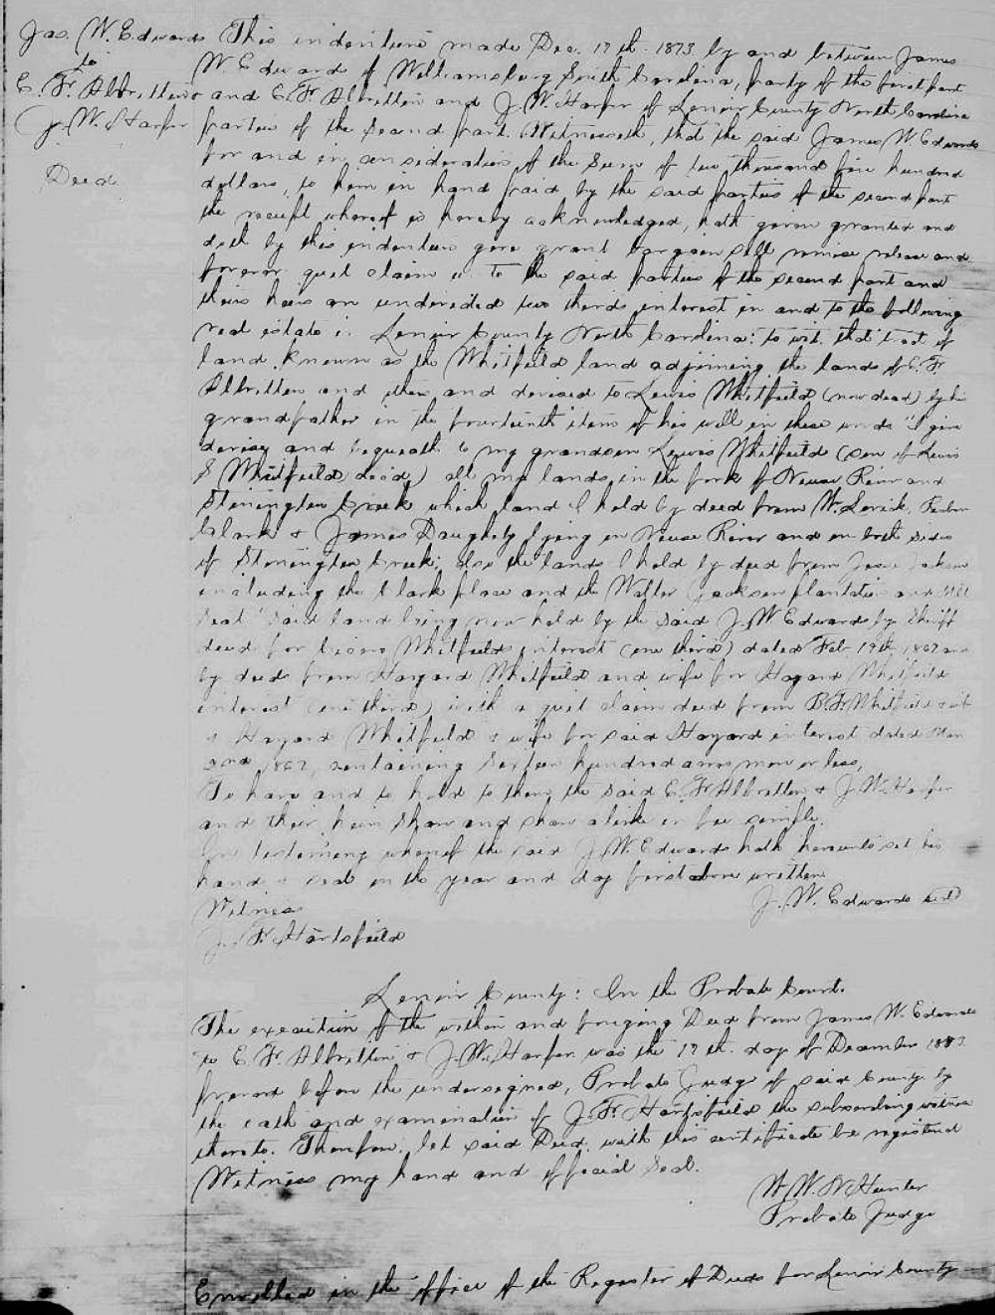 Jas. W. Edwards
to
E. F. Albritton &
J. W. Harper
Deed
This indenture made Dec. 17th 1873 by and between James
W. Edward of Williamsburg South Carolina, party of the first part
and E. F. Albritton and J. W. Harper of Lenoir County North Carolina
parties of the second part. Witnesseth, that the said James W. Edwards
for and in consideration of the sum of two thousand five hundred
dollars, to him in hand paid by the said parties of the second part
the receipt whereof is hereby acknowledged, hath given granted and
doth by this indenture give grant bargain sell remise release and
forever quit claim to the said parties of the second part and
their heirs an undivided two thirds interest in and to the following
real estate in Lenoir County North Carolina: to wit, that tract of
land known as the Whitfield land adjoining the lands of E. F.
Albritton and others and devised to Lewis Whitfield (now dead) by his
grandfather in the fourteenth item of his will in these words "I give
devise and bequeath to my grandson Lewis Whitfield (son of Lewis
S Whitfield dec'd) all my lands in the fork of Neuse River and
Stonington Creek which land I hold by deed from W. Lovick,
Clark & James Daughety lying on Neuse River and on both sides
of Stonington Creek; also the lands I hold by deed from Jesse Jackson
including the Clark place and the Walter Jackson plantation and Mill
Seat" Said land being now held by the said J. W. Edwards by Sheriff
deed for Whitfields interest (one third) dated Feb. 19th 1867 and
by deed from Hazard Whitfield and wife for Hazard Whitfields
interest (one third) with a quit claim deed from B. F. Whitfield & wife
& Hazard Whitfield & wife for said Hazard interest dated
2nd 1867, containing Sixteen hundred acres more or less,
To have and to hold to them the said E. F. Albritton & J. W. Harper
and their heirs share and share alike in fee simple.
In testimony whereof the said J. W. Edwards hath hereunto set his
hand & seal on the year and day first above written
Witness
J. W. Edwards seal
J. F. Hartsfield
Lenoir County: In the Probate Court.
The execution of the within and foregoing Deed from James W. Edwards
to E. F. Albritton & J. W. Harper was the 17th. day of December 1873
proved before the undersigned, Probate Judge of said County by
the oath and examination of J. F. Hartsfield the subscribing witness
thereto. Therefore, let said Deed, with this certificate be registered
Witness my hand and official Seal.
W. W. N. Hunter
Probate Judge
Enrolled in the office of the Register of Deeds for Lenoir County